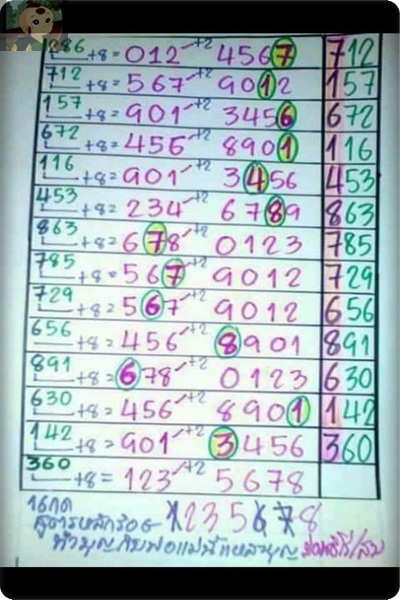 286 +8= 012 +2 4567 712
712 +8= 567 +2 9012 157
157 +8= 901 +2 3456 672
672 +8= 456 +2 8901 116
116 +8= 901 +2 3456 453
453 +8= 234 +2 6789 863
863 +8= 678 +2 0123 785
785 +8= 567 +2 9012 729
729 +8= 567 +2 9012 656
656 +8= 456 +2 8901 891
891 +8= 678 +2 0123 630
630 +8= 456 +2 8901 142
142 +8= 901 +2 3456 360
360 +8= 123 +2 5678
16กด
สูตรหลักร้อย 1235678
ทำบุญกับพ่อแม่